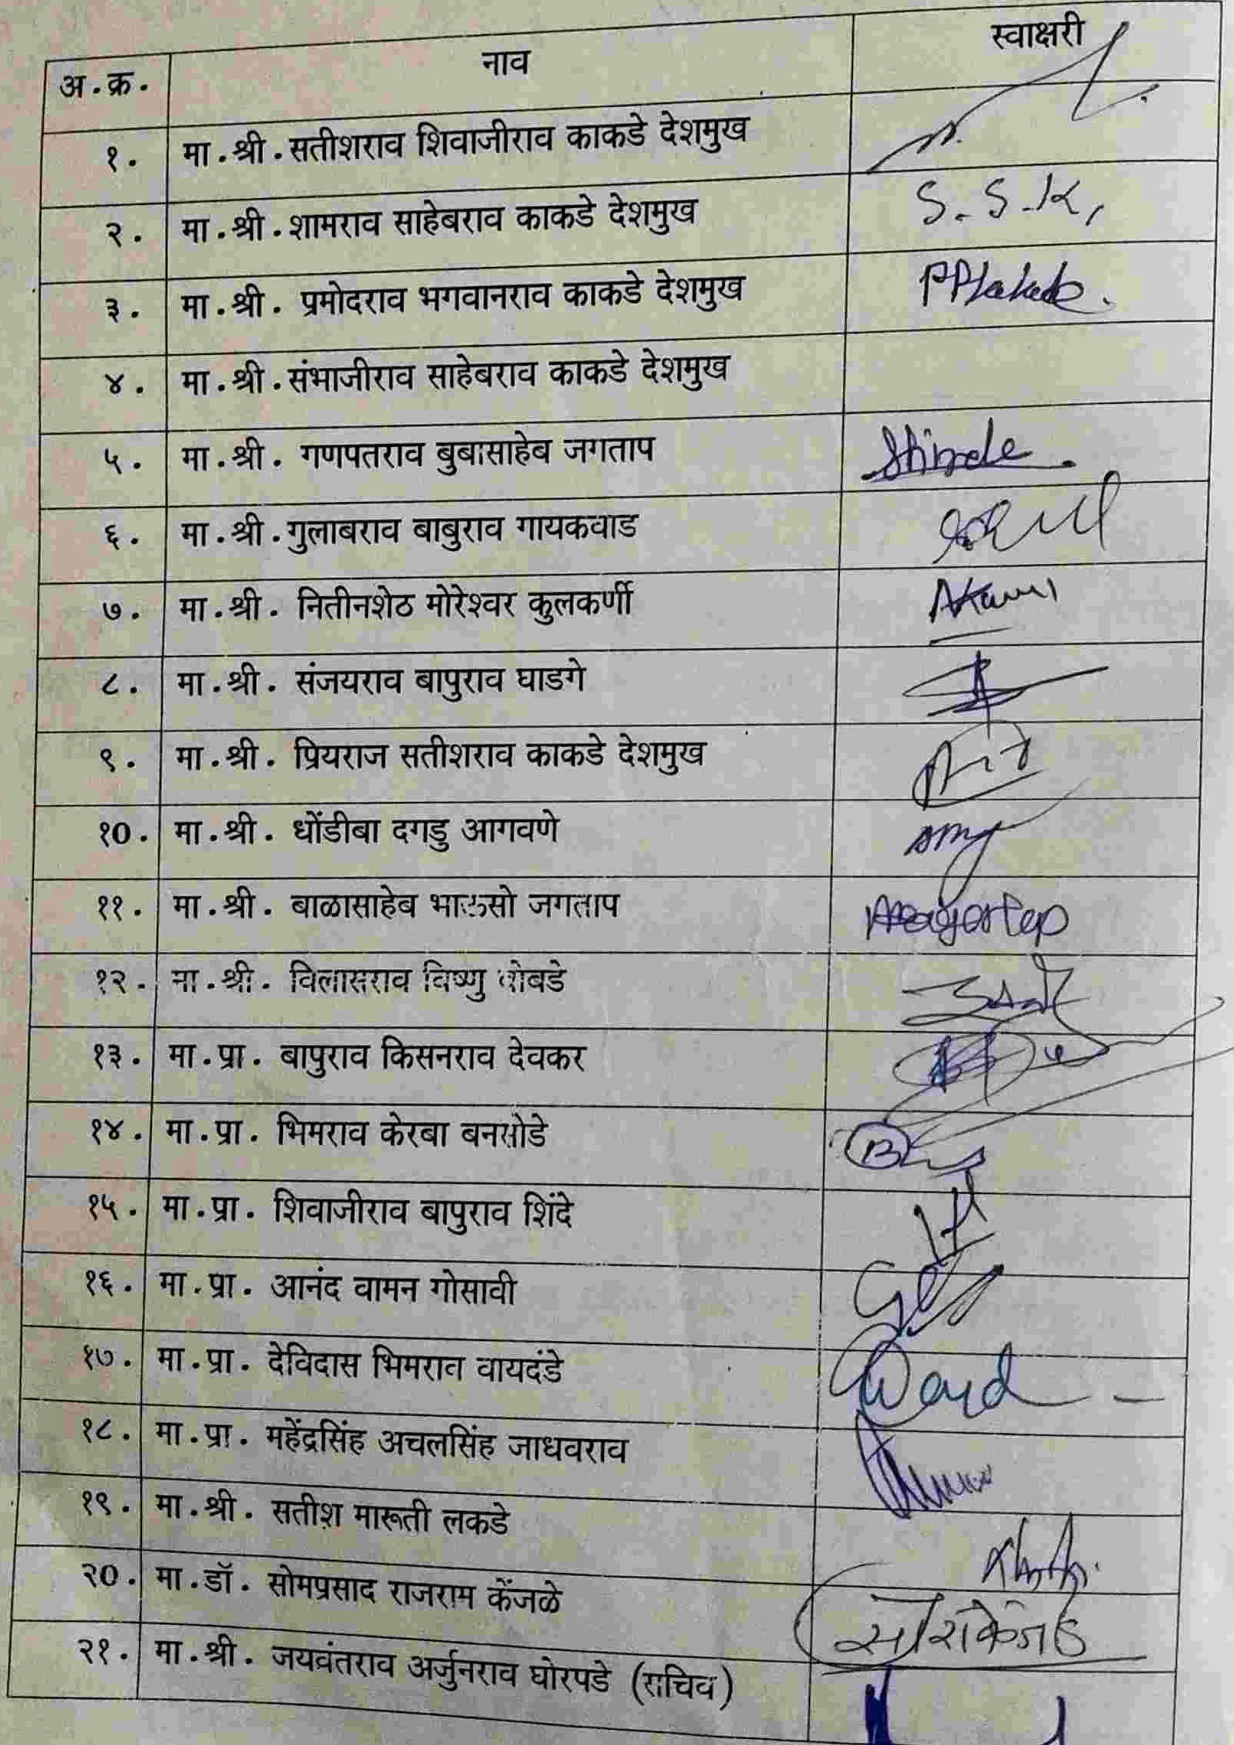 अ.क्र. नाव स्वाक्षरी
१. मा.श्री.सतीशराव शिवाजीराव काकडे देशमुख
२. मा.श्री.शामराव साहेबराव काकडे देशमुख S.S.K,
३. मा.श्री. प्रमोदराव भगवानराव काकडे देशमुख PPKakade.
४. मा.श्री.संभाजीराव साहेबराव काकडे देशमुख
५. मा.श्री. गणपतराव बुबासाहेब जगताप Shinde.
६. मा.श्री.गुलाबराव बाबुराव गायकवाड
७. मा.श्री. नितीनशेठ मोरेश्वर कुलकर्णी
८. मा.श्री. संजयराव बापुराव घाडगे
९. मा.श्री. प्रियराज सतीशराव काकडे देशमुख
१०. मा.श्री. धोंडीबा दगडु आगवणे
११. मा.श्री. बाळासाहेब भाऊसो जगताप
१२. मा.श्री. विलासराव विष्णु बोबडे
१३. मा.प्रा. बापुराव किसनराव देवकर
१४. मा.प्रा. भिमराव केरबा बनसोडे
१५. मा.प्रा. शिवाजीराव बापुराव शिंदे
१६. मा.प्रा. आनंद वामन गोसावी
१७. मा.प्रा. देविदास भिमराव वायदंडे
१८. मा.प्रा. महेंद्रसिंह अचलसिंह जाधवराव
१९. मा.श्री. सतीश मारूती लकडे
२०. मा.डॉ. सोमप्रसाद राजराम केंजळे
२१. मा.श्री. जयवंतराव अर्जुनराव घोरपडे (सचिव)